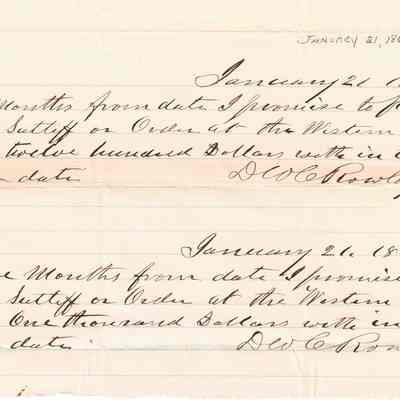 January 21, 186
January 21 18
Months from date I promise to p
Sutliff or Order at the Western
twelve hundred Dollars with in
date D W C Rowl
January 21. 18
Months from date I promise
Sutliff or Order at the Western
One thousand Dollars with in
date. D W C Row